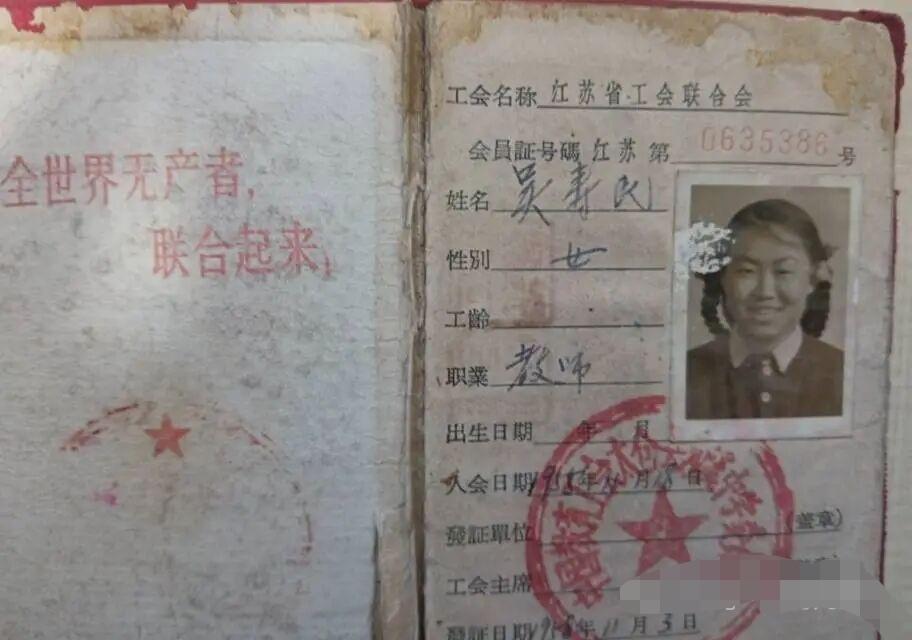 全世界无产者，
联合起来！
工会名称 江苏省工会联合会
会員証号碼 江苏 第 0635386 号
姓名 吴寿民
性別 女
工齡
职業 教师
出生日期 年 月
入会日期 年 月 日
發証單位 (盖章)
工会主席
發証日期 年 11 月 3 日